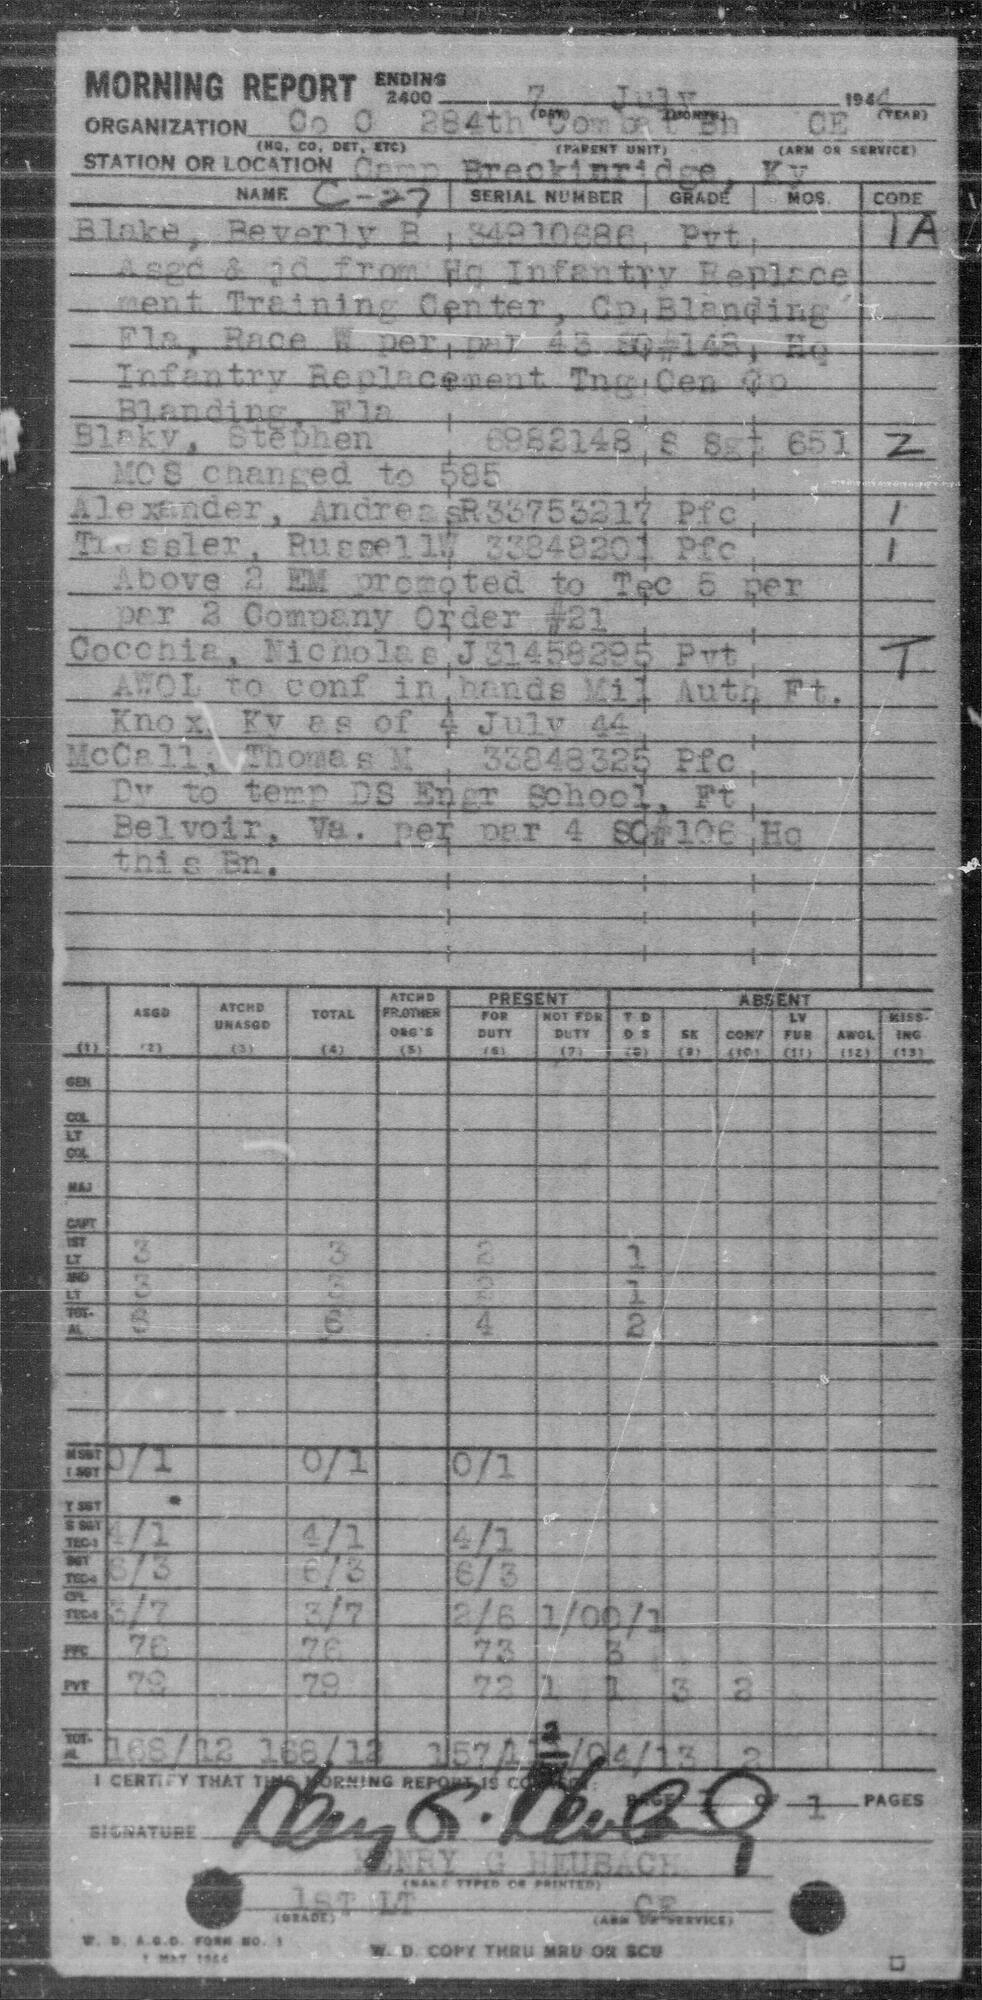 MORNING REPORT ENDING 2400 7 July 1944
(DAY) (MONTH) (YEAR)
ORGANIZATION Co C 284th Combat Bn CE
(HQ, CO, DET, ETC) (PARENT UNIT) (ARM OR SERVICE)
STATION OR LOCATION Camp Breckinridge, Ky
NAME C-27 SERIAL NUMBER GRADE MOS. CODE
Blake, Beverly B 34910686 Pvt 1A
Asgd & jd from Hq Infantry Replace
ment Training Center, Cp Blanding
Fla, Race W per par 43 SO#148, Hq
Infantry Replacement Tng Cen Cp
Blanding, Fla
Blaky, Stephen 6982148 S Sgt 651 2
MOS changed to 585
Alexander, Andreas R 33753217 Pfc 1
Tressler, Russell W 33848201 Pfc 1
Above 2 EM promoted to Tec 5 per
par 2 Company Order #21
Cocchia, Nicholas J 31458295 Pvt T
AWOL to conf in hands Mil Auth Ft.
Knox Ky as of 4 July 44
McCall, Thomas M 33848325 Pfc
Dy to temp DS Engr School, Ft
Belvoir, Va. per par 4 SO#106 Hq
this Bn.
ASGD ATCHD UNASGD TOTAL ATCHD FR.OTHER ORG'S PRESENT ABSENT
FOR DUTY NOT FOR DUTY T D D S SK CONF LV FUR AWOL MISSING
(1) (2) (3) (4) (5) (6) (7) (8) (9) (10) (11) (12) (13)
GEN
COL
LT COL
MAJ
CAPT
1ST LT 3 3 2 1
2ND LT 3 3 2 1
TOTAL 6 6 4 2
M SGT 1 SGT 0/1 0/1 0/1
T SGT
S SGT TEC-3 4/1 4/1 4/1
SGT TEC-4 6/3 6/3 6/3
CPL TEC-5 3/7 3/7 2/6 1/0 0/1
PFC 76 76 73 3
PVT 79 79 72 1 1 3 2
TOTAL 168/12 168/12 157/1 2/0 4/1 3 2
I CERTIFY THAT THIS MORNING REPORT IS CORRECT:
PAGE 1 OF 1 PAGES
SIGNATURE Henry G. Heubach
HENRY G HEUBACH
(NAME TYPED OR PRINTED)
1ST LT CE
(GRADE) (ARM OR SERVICE)
W. D. A.G.O. FORM NO. 1
1 MAY 1944
W. D. COPY THRU MRU OR SCU